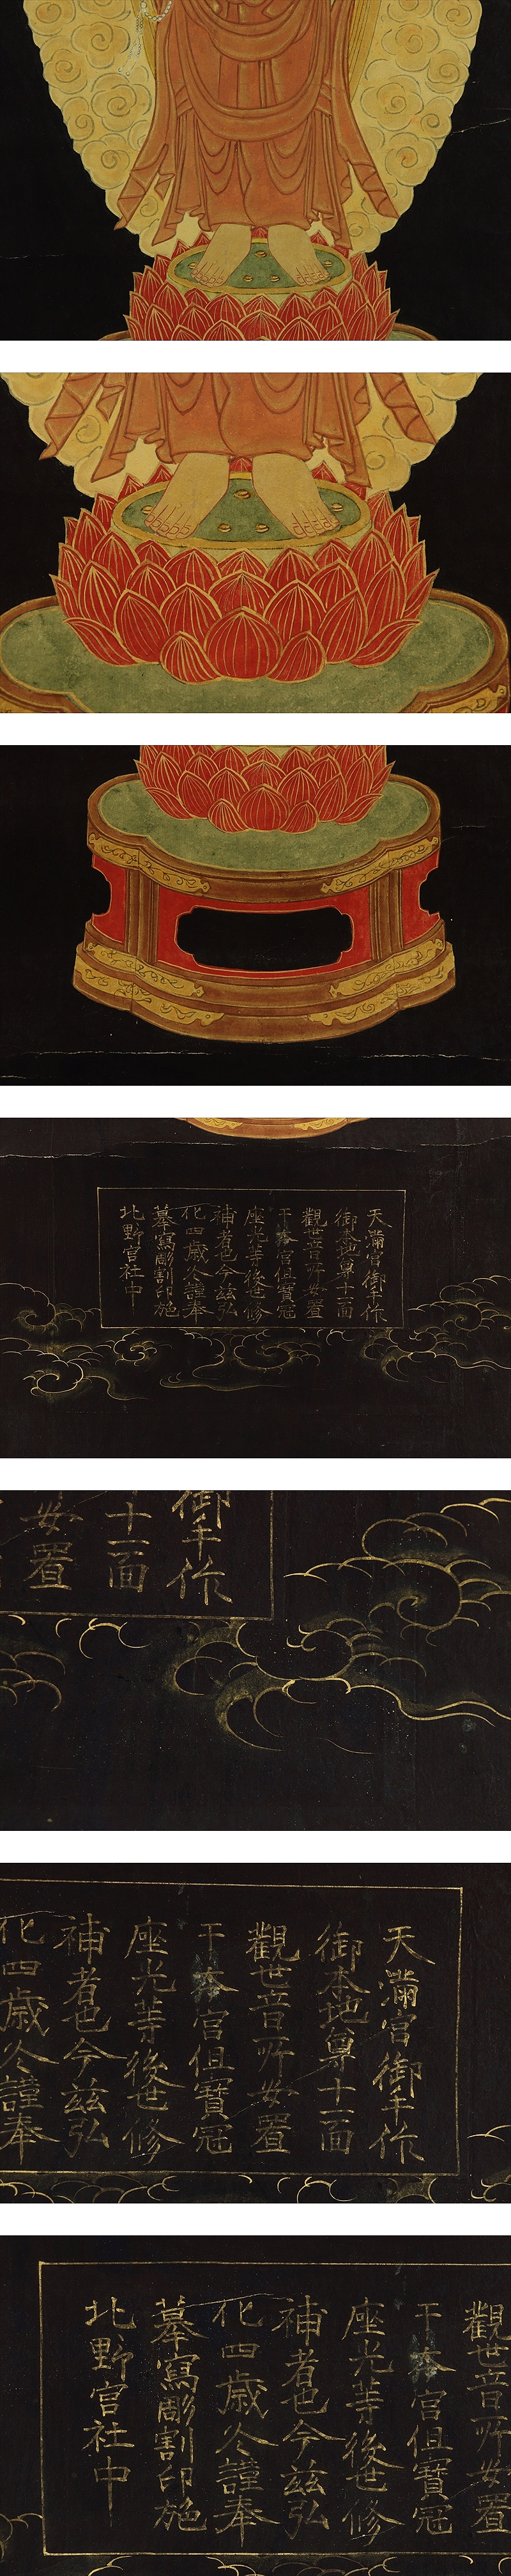 天滿宮御手作
御本地尊十一面
觀世音所安置
于宮但寶冠
座光等後世修
補者也今茲弘
化四歳冬謹奉
摹寫彫割印施
北野宮社中
御手作
十一面
安置
天滿宮御手作
御本地尊十一面
觀世音所安置
于宮但寶冠
座光等後世修
補者也今茲弘
化四歳冬謹奉
觀世音所安置
于宮但寶冠
座光等後世修
補者也今茲弘
化四歳冬謹奉
摹寫彫割印施
北野宮社中